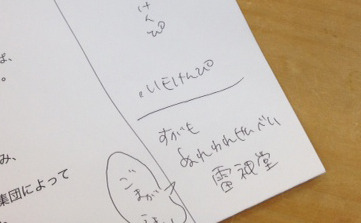 ば、
。
み、
集団によって
けんぴ
・いもけんぴ
すがも
ぬれわれせんべい
雷神堂
ごまが